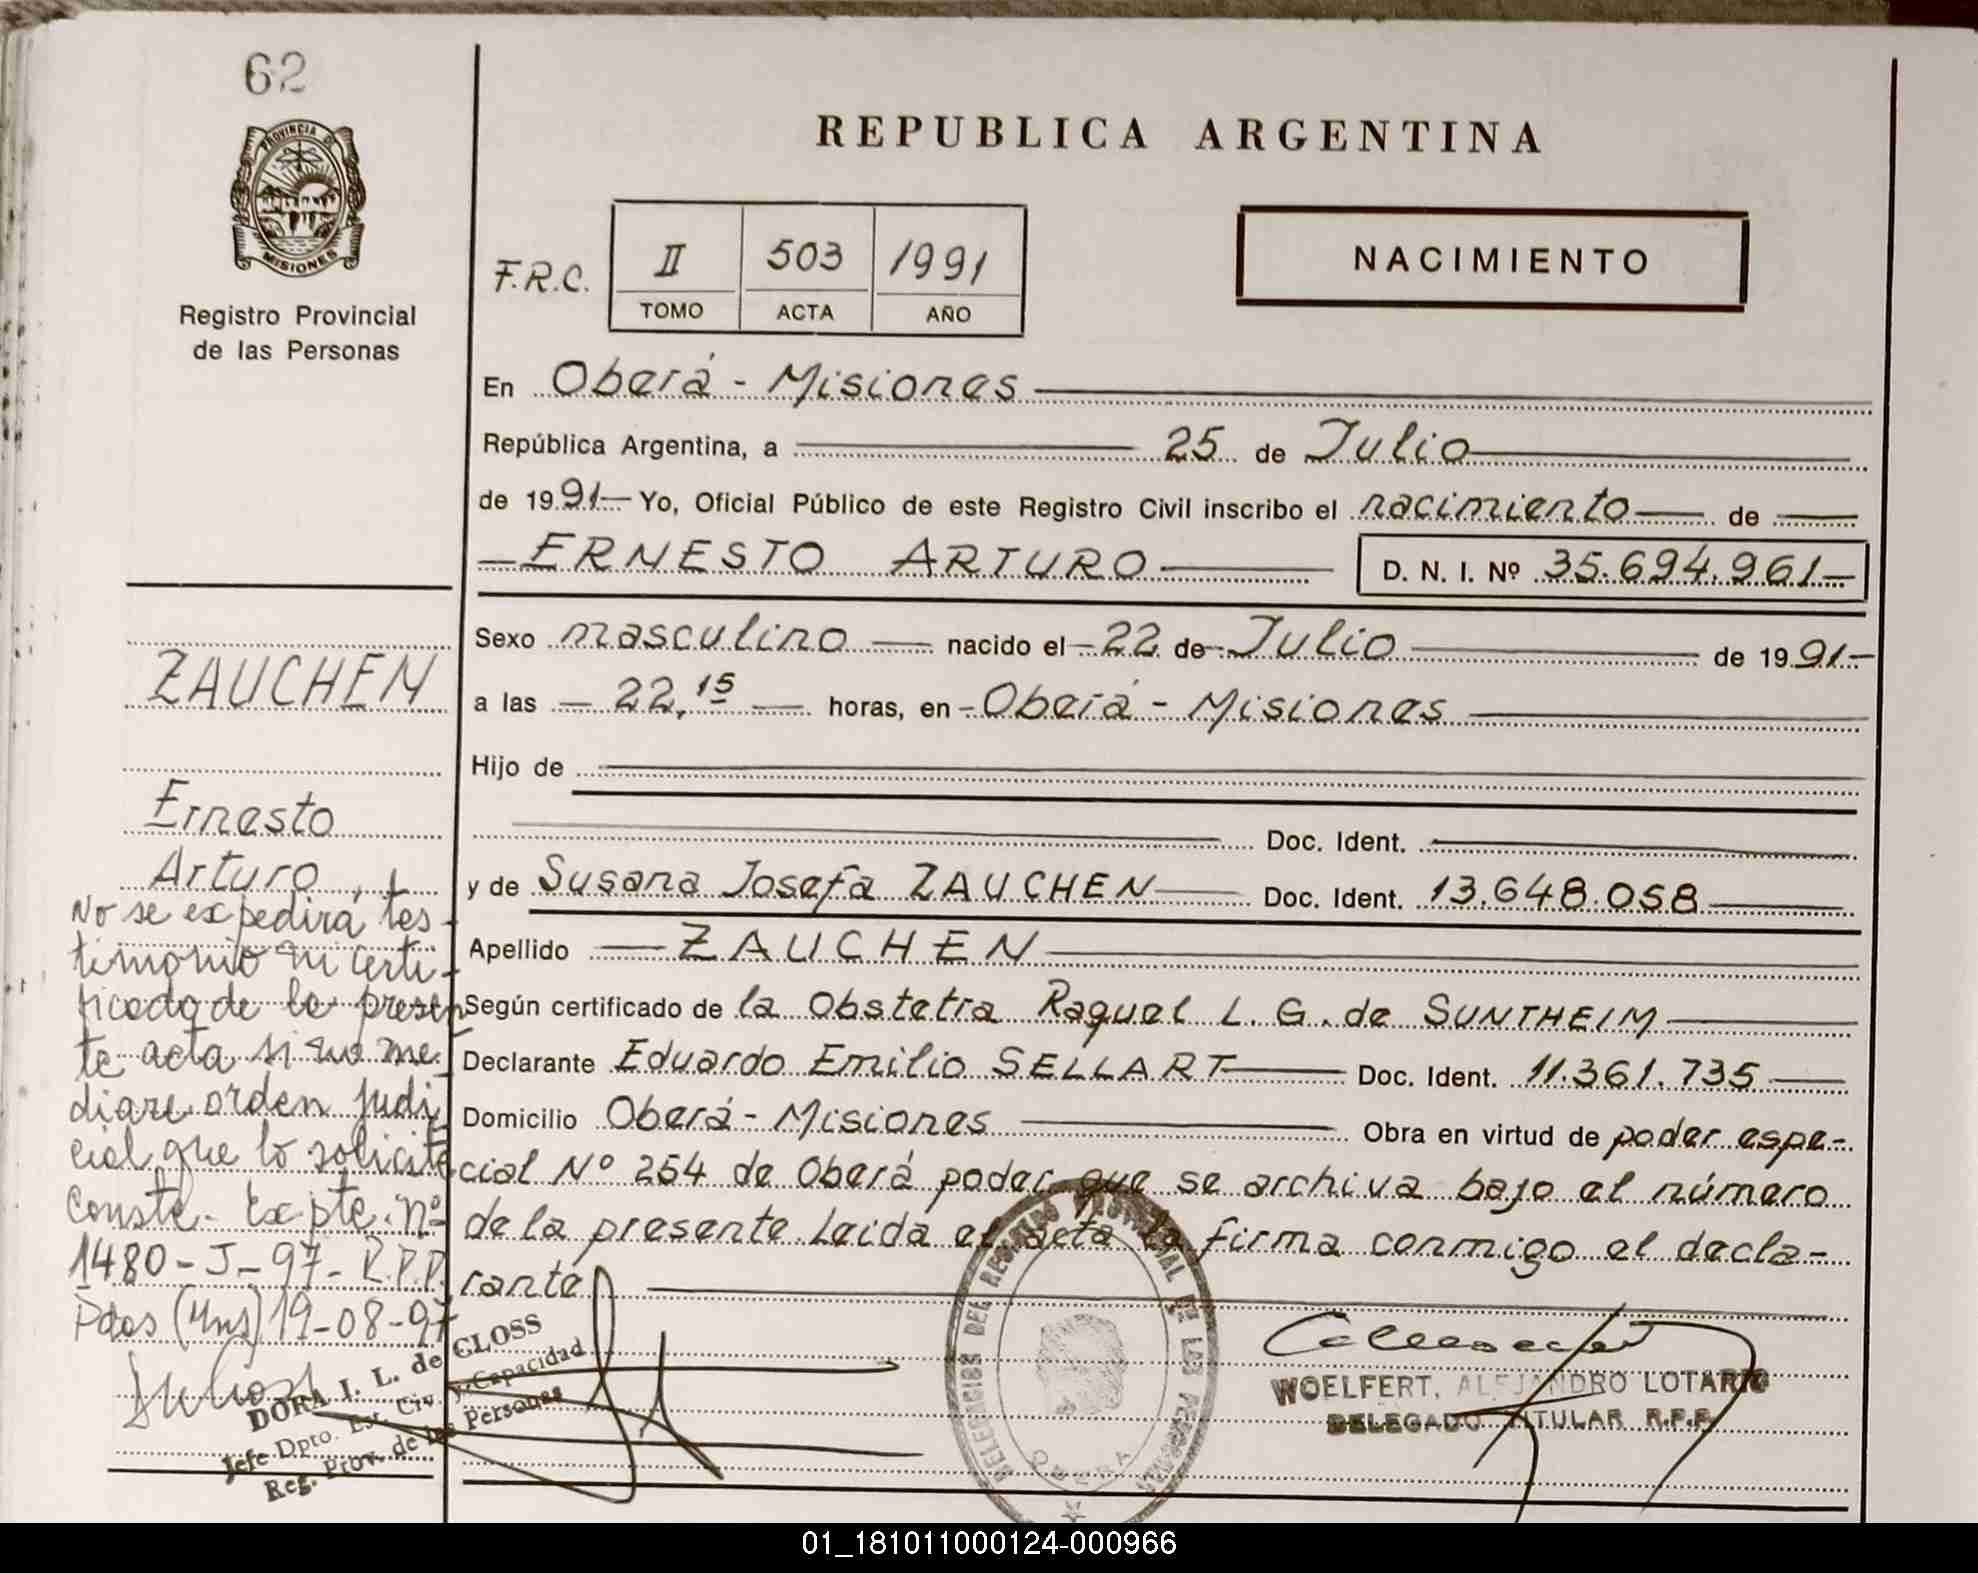 62
PROVINCIA DE
MISIONES
Registro Provincial
de las Personas
REPUBLICA ARGENTINA
F.R.C. II 503 1991
TOMO ACTA AÑO
NACIMIENTO
En Oberá - Misiones
República Argentina, a 25 de Julio
de 1991 Yo, Oficial Público de este Registro Civil inscribo el nacimiento de
ERNESTO ARTURO D. N. I. Nº 35.694.961
Sexo masculino nacido el 22 de Julio de 1991
a las 22,15 horas, en Oberá - Misiones
Hijo de
Doc. Ident.
y de Susana Josefa ZAUCHEN Doc. Ident. 13.648.058
Apellido ZAUCHEN
Según certificado de la Obstetra Raquel L. G. de SUNTHEIM
Declarante Eduardo Emilio SELLART Doc. Ident. 11.361.735
Domicilio Oberá - Misiones Obra en virtud de poder espe-
cial Nº 254 de Oberá poder que se archiva bajo el número
de la presente Leida el acta la firma conmigo el decla-
rante
ZAUCHEN
Ernesto
Arturo
No se expedirá tes-
timonio ni certi-
ficado de la presen
te acta si no me-
diare orden judi
cial que lo solicite
Conste. Expte. nº
1480-J-97- R.P.P.
Pdas (Mns) 19-08-97
DORA I. L. de CLOSS
Jefe Dpto. Est. Civ. y Capacidad
Reg. Prov. de las Personas
DELEGACION DEL REGISTRO PROVINCIAL DE LAS PERSONAS
OBERA
WOELFERT, ALEJANDRO LOTARIO
DELEGADO TITULAR R.P.P.
01_181011000124-000966